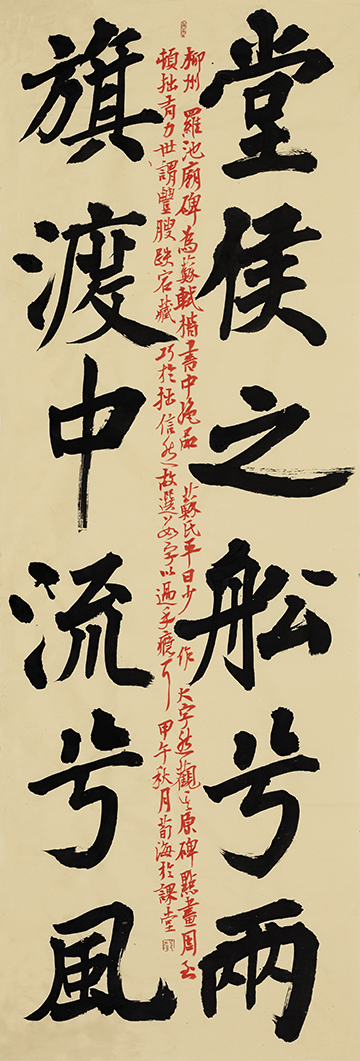 堂侯之船兮兩
旗渡中流兮風
柳州羅池廟碑為蘇軾楷書中絕品 蘇氏平日少作大字然觀其原碑點畫周至
頓拙有力世謂豐腴跌宕藏巧於拙信然故選廿字以過手癮耳 甲午秋月荀海於課堂